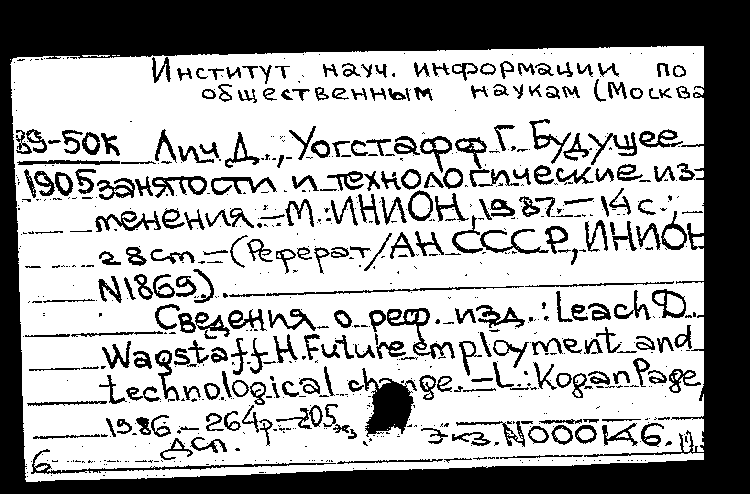 Институт науч. информации по
общественным наукам (Москва
89-50К Лич Д., Уогстафф Г. Будущее
1905 занятости и технологические из-
менения. — М.: ИНИОН, 1987. — 14 с.;
28 см. — (Реферат/АН СССР, ИНИОН
N1869).
Сведения о реф. изд.: Leach D.
Wagstaff H. Future employment and
technological change. — L.: Kogan Page,
1986. — 264 p. — 205 экз.
ДСП. Экз. N000146.
б